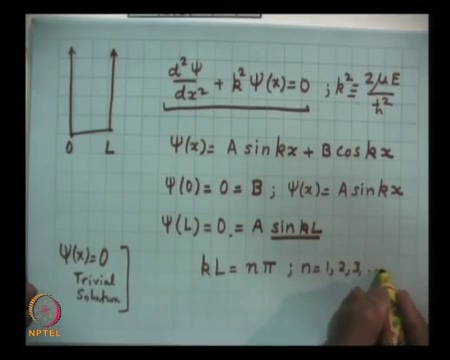 d²Ψ/dx² + k² Ψ(x) = 0 ; k² = 2μE/ħ²
0 L
Ψ(x) = A sin kx + B cos kx
Ψ(0) = 0 = B ; Ψ(x) = A sin kx
Ψ(L) = 0 = A sin kL
Ψ(x) = 0
Trivial
Solution
kL = nπ ; n = 1, 2, 3, ...
NPTEL